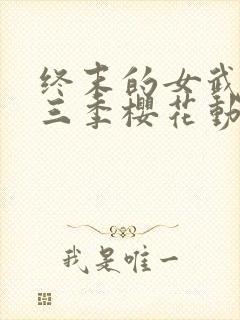 终末的女武
三季樱花動
我是唯一